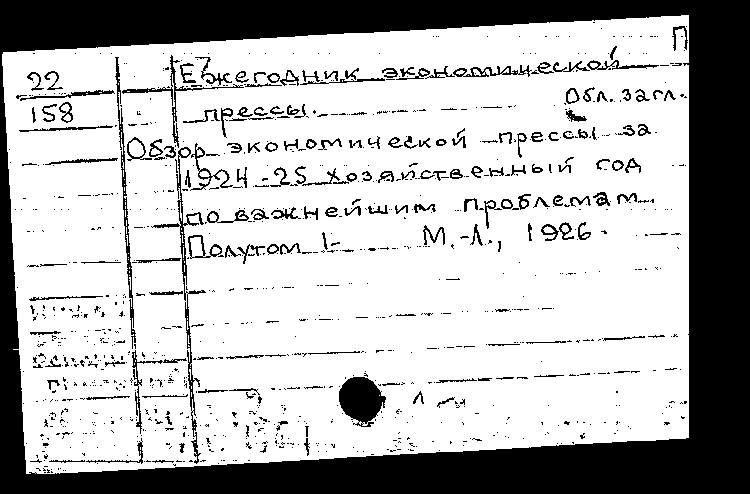 П
22 Ежегодник экономической
158 прессы. Обл. загл.
Обзор экономической прессы за
1924-25 хозяйственный год
по важнейшим проблемам.
Полутом 1- М.-Л., 1926.